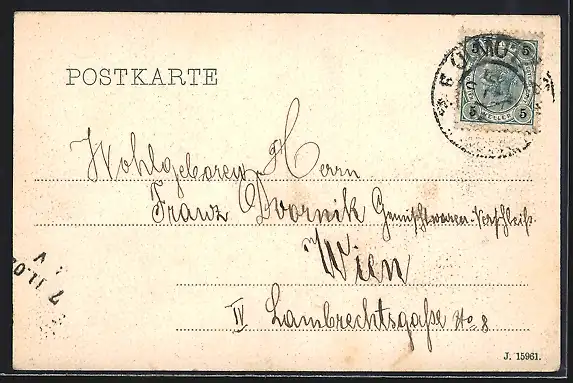 5 5
HELLER
5 5
POSTKARTE
Wohlgeboren Herrn
Franz Dvornik Gemischtwaren-Verschleiß
Wien
IV Lambrechtsgaße No 8
J. 15961.